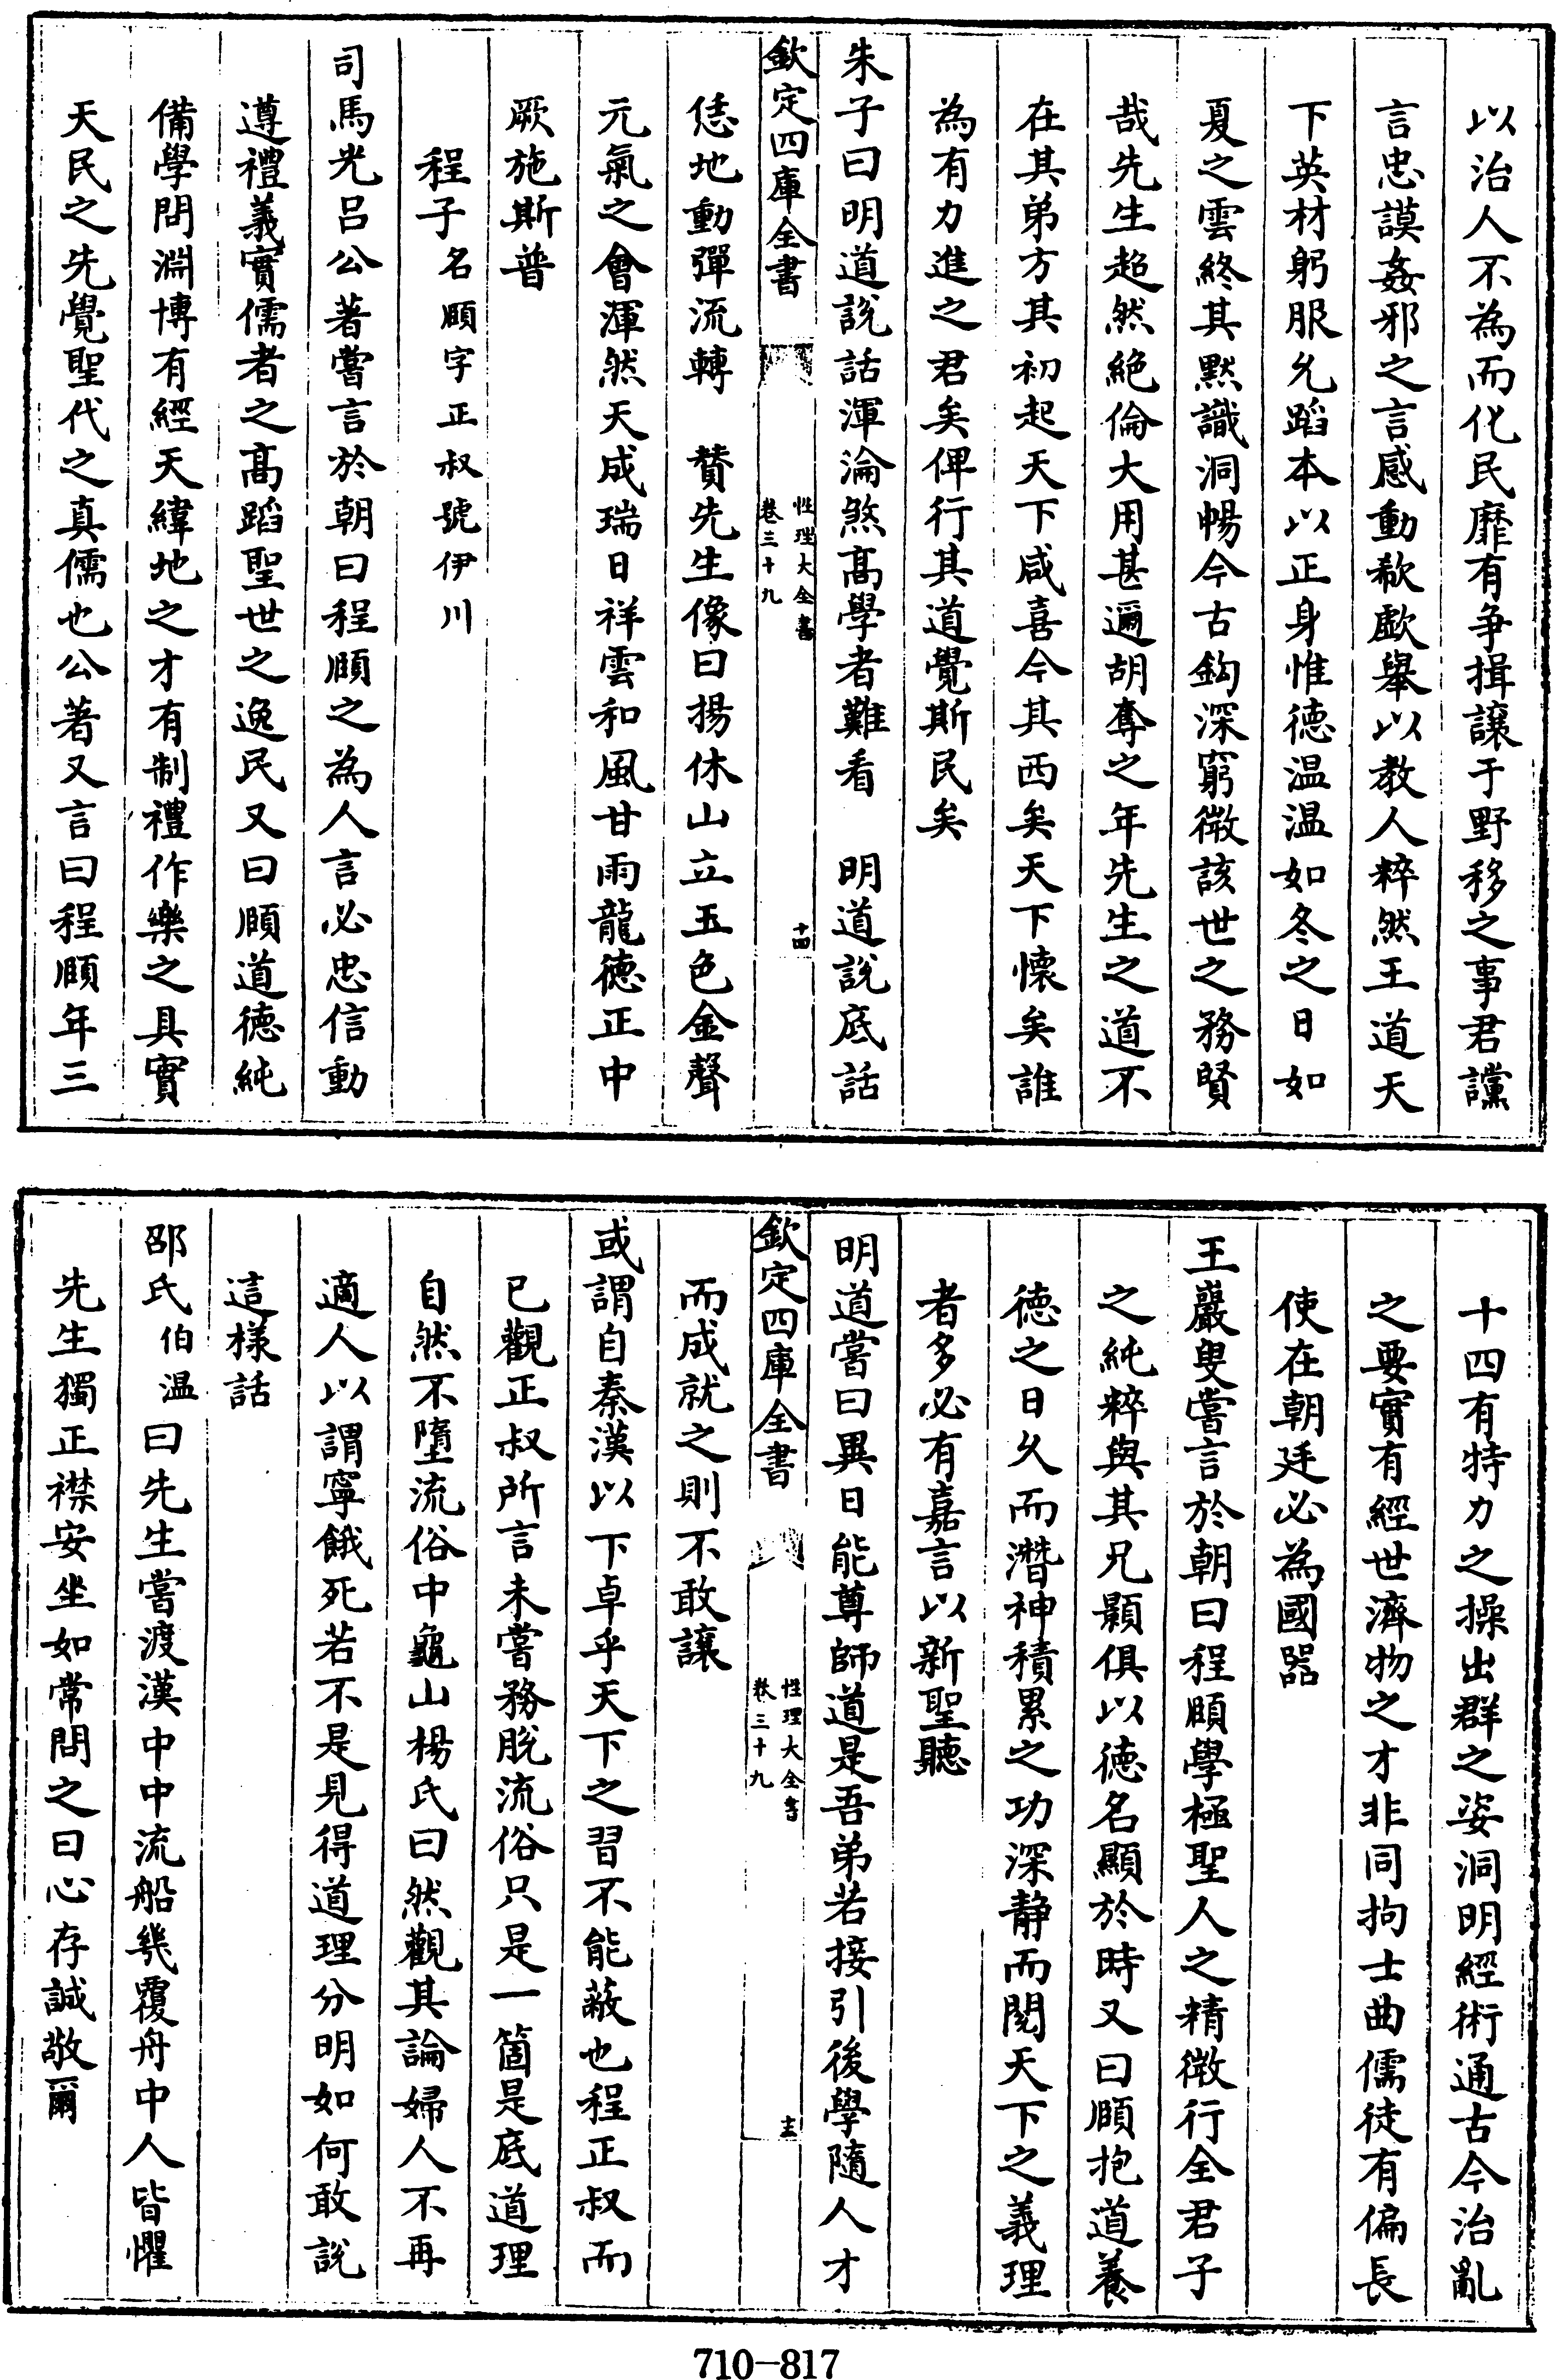 以治人不為而化民靡有争揖讓于野移之事君讜
言忠謨姦邪之言感動欷歔舉以教人粹然王道天
下英材躬服允蹈本以正身惟德温温如冬之日如
夏之雲終其黙識洞暢今古鈎深窮微該世之務賢
哉先生超然絶倫大用甚邇胡奪之年先生之道不
在其弟方其初起天下咸喜今其西矣天下懷矣誰
為有力進之君矣俾行其道覺斯民矣
朱子曰明道說話渾淪煞髙學者難看　明道說底話
欽定四庫全書
性理大全書
卷三十九
十四
恁地動彈流轉　贊先生像曰揚休山立玉色金聲
元氣之會渾然天成瑞日祥雲和風甘雨龍德正中
厥施斯普
程子名頤字正叔號伊川
司馬光吕公著嘗言於朝曰程頤之為人言必忠信動
遵禮義實儒者之髙蹈聖世之逸民又曰頤道德純
備學問淵博有經天緯地之才有制禮作樂之具實
天民之先覺聖代之真儒也公著又言曰程頤年三
十四有特力之操出群之姿洞明經術通古今治亂
之要實有經世濟物之才非同拘士曲儒徒有偏長
使在朝廷必為國器
王巖叟嘗言於朝曰程頤學極聖人之精微行全君子
之純粹與其兄顥俱以德名顯於時又曰頤抱道養
德之日久而潛神積累之功深静而閲天下之義理
者多必有嘉言以新聖聽
明道嘗曰異日能尊師道是吾弟若接引後學隨人才
欽定四庫全書
性理大全書
卷三十九
十五
而成就之則不敢讓
或謂自秦漢以下卓乎天下之習不能蔽也程正叔而
已觀正叔所言未嘗務脫流俗只是一箇是底道理
自然不墮流俗中龜山楊氏曰然觀其論婦人不再
適人以謂寧餓死若不是見得道理分明如何敢說
這様話
邵氏伯温曰先生嘗渡漢中中流船幾覆舟中人皆懼
先生獨正襟安坐如常問之曰心存誠敬爾
710-817